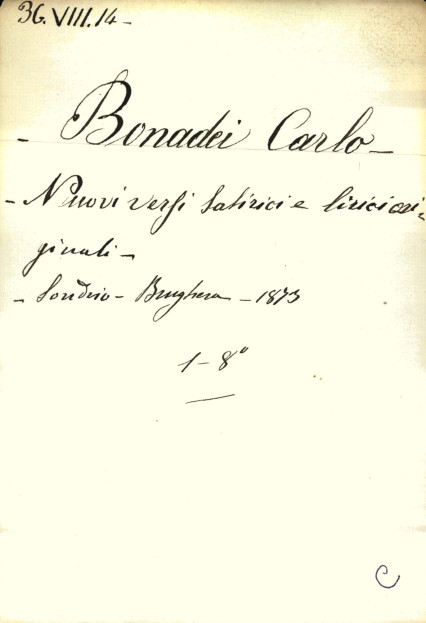 36.VIII.14-
- Bonadei Carlo -
- Nuovi versi satirici e lirici ori-
ginali -
- Sondrio - Brughera - 1873
1-8°
C